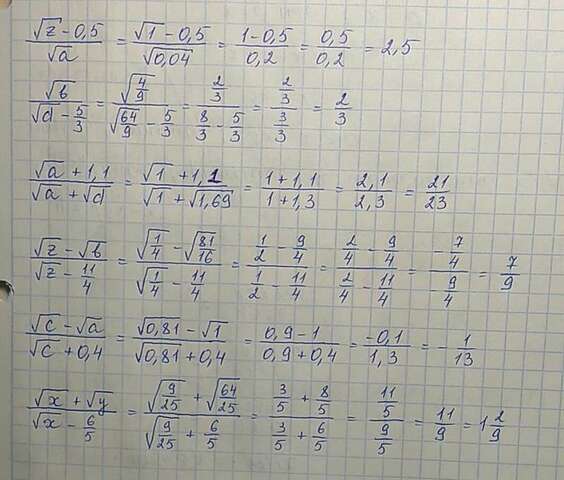 (√z − 0,5)/√a = (√1 − 0,5)/√0,04 = (1 − 0,5)/0,2 = 0,5/0,2 = 2,5
√b/(√d − 5/3) = √(4/9)/(√(64/9) − 5/3) = (2/3)/(8/3 − 5/3) = (2/3)/(3/3) = 2/3
(√a + 1,1)/(√a + √d) = (√1 + 1,1)/(√1 + √1,69) = (1 + 1,1)/(1 + 1,3) = 2,1/2,3 = 21/23
(√z − √b)/(√z − 11/4) = (√(1/4) − √(81/16))/(√(1/4) − 11/4) = (1/2 − 9/4)/(1/2 − 11/4) = (2/4 − 9/4)/(2/4 − 11/4) = (−7/4)/(−9/4) = 7/9
(√c − √a)/(√c + 0,4) = (√0,81 − √1)/(√0,81 + 0,4) = (0,9 − 1)/(0,9 + 0,4) = −0,1/1,3 = −1/13
(√x + √y)/(√x − 6/5) = (√(9/25) + √(64/25))/(√(9/25) + 6/5) = (3/5 + 8/5)/(3/5 + 6/5) = (11/5)/(9/5) = 11/9 = 1 2/9